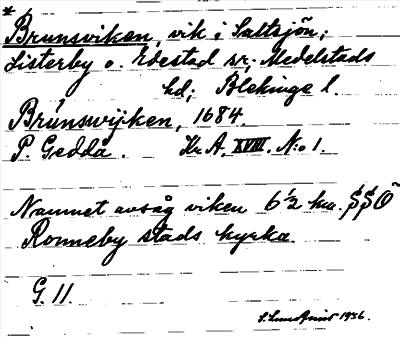 *
Brunsviken, vik i Saltsjön;
Listerby o. Edestad sr; Medelstads
hd; Blekinge l.
Brúnswijken, 1684.
P. Gedda. Kr. A. XVIII. N:o 1.
Namnet avsåg viken 6½ km. SSÖ
Ronneby stads kyrka.
G. 11.
S. Lundquist 1936.